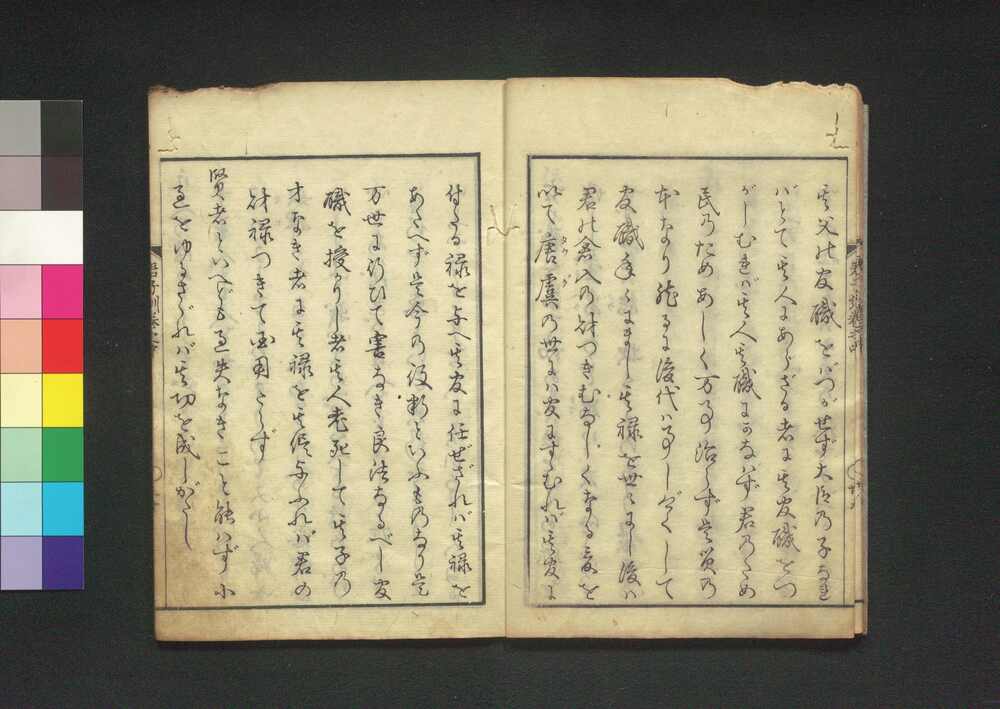 其父の官職をつがせず大臣の子なれ
ばとて其人にあらざる者に其官職をつ
がしむれば其人其職にかなはず君のため
民のためあしく万事治らず是災の
本なり然るに後代は事しげくして
官職年々にまし其禄を世々にし後は
君の倉入の財つきむなしくなる愛を
以て唐虞の世には官にすゝむれば其官に
付たる禄を与へ其官に任ぜざれば其禄を
あたへず是今の役料といふものなり是
万世に行ひて害なき良法なるべし官
職を授りし者其人老死して其子の
才なき者に其禄を其侭与ふれば君の
財禄つきて国用たらず
賢者といへども過失なきこと能はず小
過をゆるさゞれば其功を成しがたし